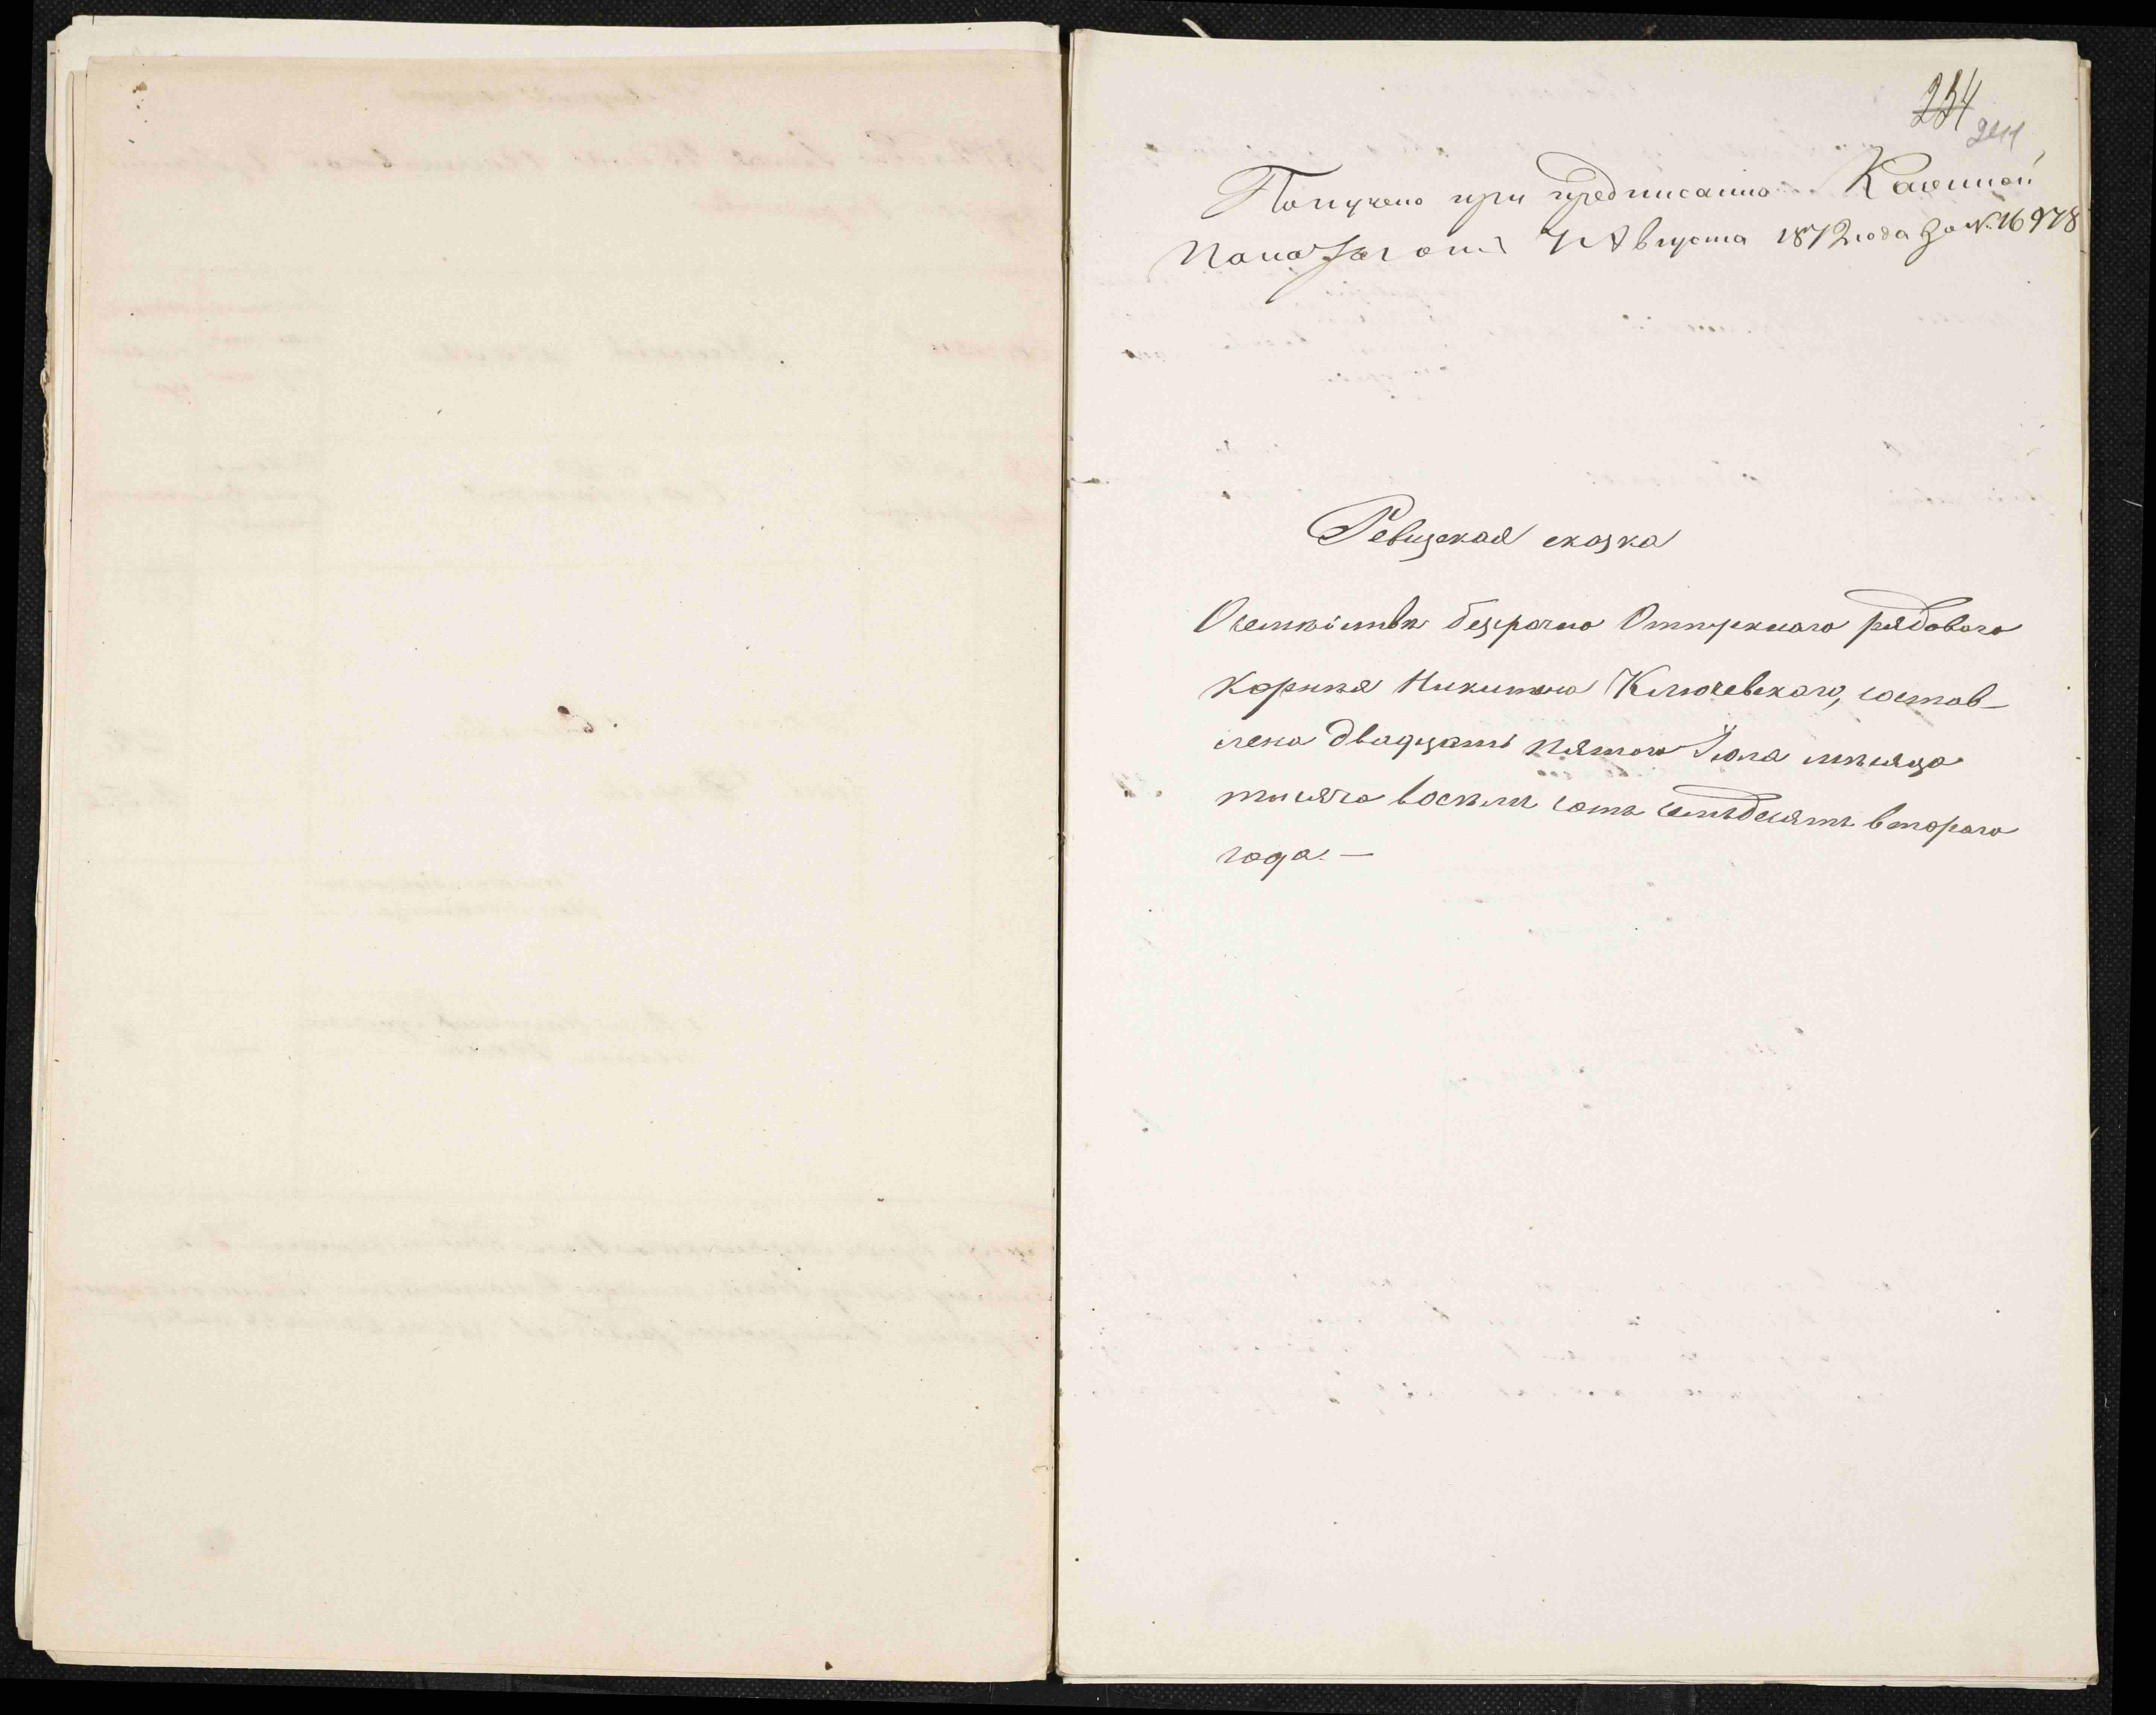 254
241
Получено при предписании Казенной
Палаты отъ 7 Августа 1872 года за N. 16978
Ревизская сказка
О семействѣ безсрочно Отпускного рядового
Корнея Никитина Ключевскаго, состав-
лена двадцать пятого Іюля мѣсяца
тысяча восѣмь сотъ семьдесятъ второго
года. —